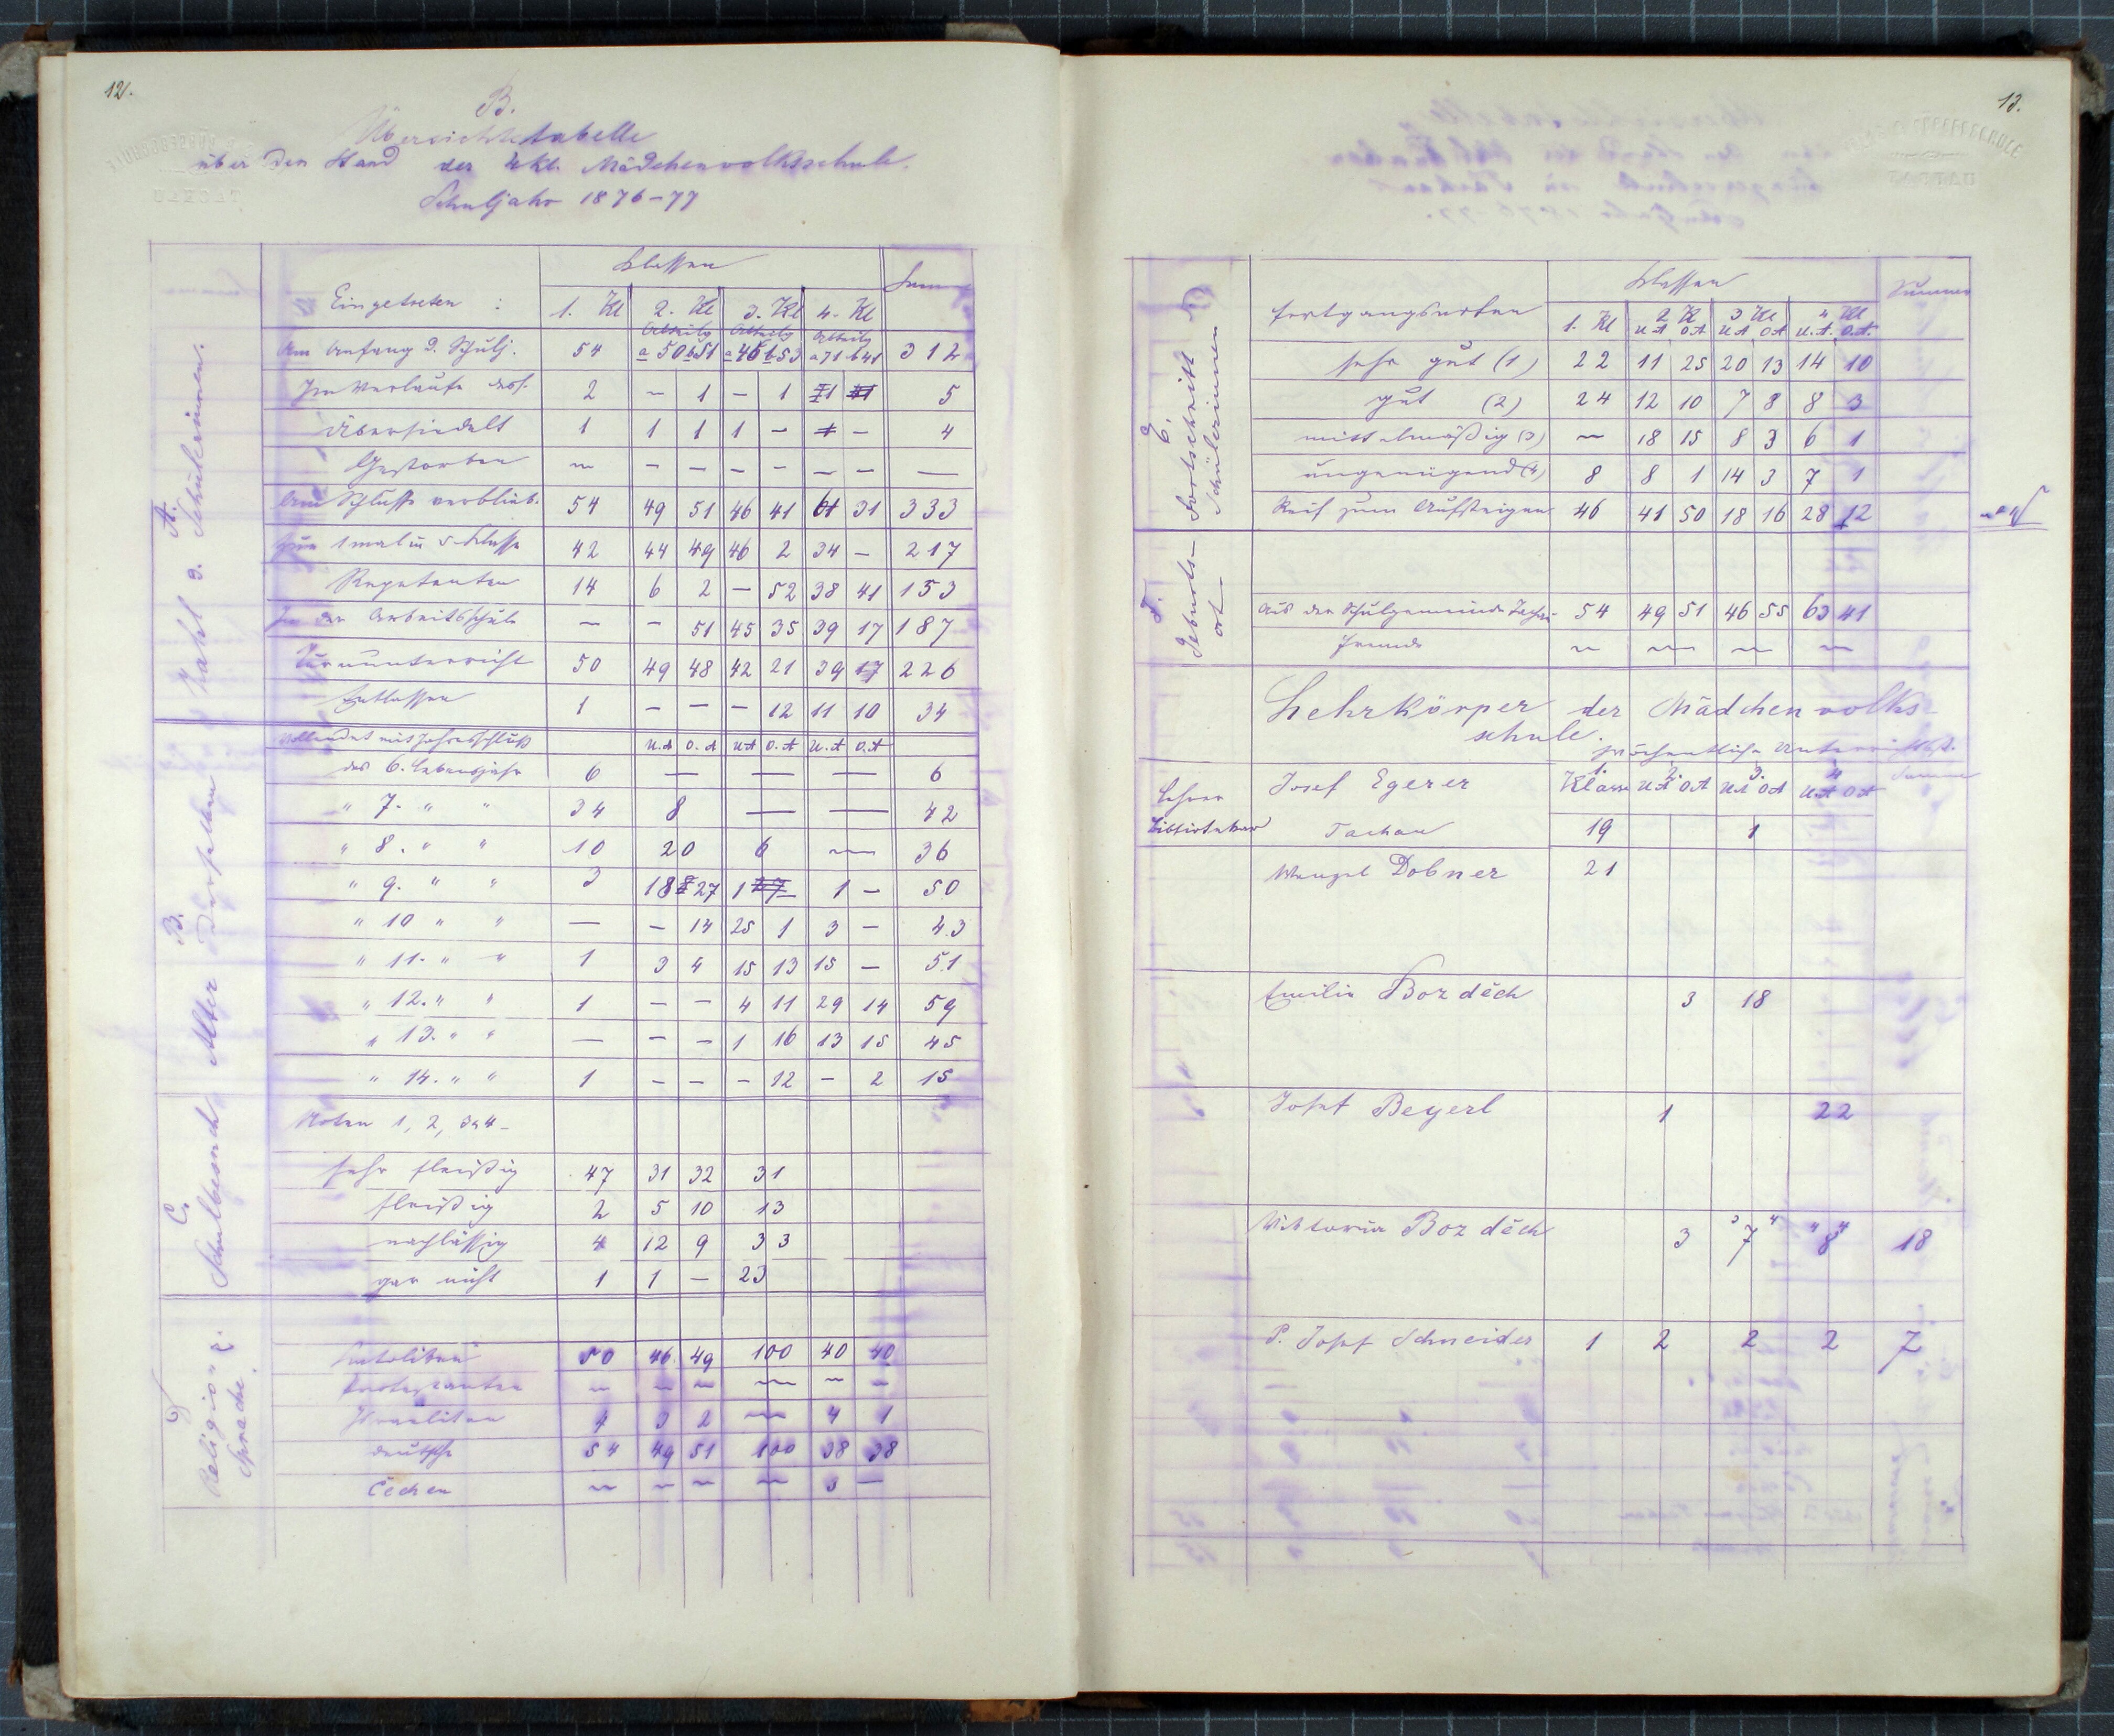 12.
B.
Übersichtstabelle
über den Stand der 4kl. Mädchenvolksschule.
Schuljahr 1876-77
A.
Zahl d. Schülerinnen.
Eingetreten :
Klassen
Summe
1. Kl 2. Kl 3. Kl 4. Kl
Abteilg Abteilg Abteilg
Am Anfang d. Schulj. 54 a 50 b 51 a 46 b 53 a 71 b 41 312
Im Verlaufe dess. 2 - 1 - 1 5
Übersiedelt 1 1 1 1 - - 4
Gestorben ~ - - - - - - —
Am Schlusse verblieb. 54 49 51 46 41 61 31 333
zum 1mal in d. Klasse 42 44 49 46 2 34 - 217
Repetenten 14 6 2 - 52 38 41 153
In der Arbeitsschule - - 51 45 35 39 17 187
Turnunterricht 50 49 48 42 21 39 17 226
Entlassen 1 - - - 12 11 10 34
B.
Alter derselben
Vollendet mit Jahresschluß u.A o.A u.A o.A u.A o.A
das 6. Lebensjahr 6 — — — 6
" 7. " " 34 8 — — 42
" 8. " " 10 20 6 — 36
" 9. " " 3 18 27 1 1 - 50
" 10 " " — - 14 25 1 3 - 43
" 11. " " 1 3 4 15 13 15 - 51
" 12. " " 1 - - 4 11 29 14 59
" 13. " " — - - 1 16 13 15 45
" 14. " " 1 - - - 12 - 2 15
C.
Schulbesuch
Noten 1, 2, 3 u 4 -
sehr fleißig 47 31 32 31
fleißig 2 5 10 13
nachlässig 4 12 9 33
gar nicht 1 1 - 23
D
Religion u.
Sprache.
Katoliken 50 46 49 100 40 40
Protestanten ~ ~ ~ ~ ~ ~
Israeliten 4 3 2 ~ 4 1
deutsche 54 49 51 100 38 38
Čechen ~ ~ ~ ~ 3 —
13.
E.
Fortschritt d.
Schülerinnen
Fortgangsnoten
Klassen
Summe
1. Kl 2 Kl 3 Kl 4 Kl
u.A o.A u.A o.A u.A. o.A.
sehr gut (1) 22 11 25 20 13 14 10
gut (2) 24 12 10 7 8 8 3
mittelmäßig (3) ~ 18 15 8 3 6 1
ungenügend (4) 8 8 1 14 3 7 1
Reif zum Aufsteigen 46 41 50 18 16 28 12
F.
Geburts-
ort
Aus der Schulgemeinde Tachau 54 49 51 46 55 63 41
Fremde ~ ~ ~ ~
Lehrkörper der Mädchenvolks-
schule.
wöchentliche Unterrichtsst.
Lehrer
Josef Egerer
1. Klasse 2. u.A o.A 3. u.A o.A 4 u.A o.A Summe
Bibliothekar
Tachau 19 1
Wenzel Dobner 21
Emilie Bozděch 3 18
Josef Beyerl 1 22
Viktoria Bozděch 3 7 8 18
P. Josef Schneider 1 2 2 2 7